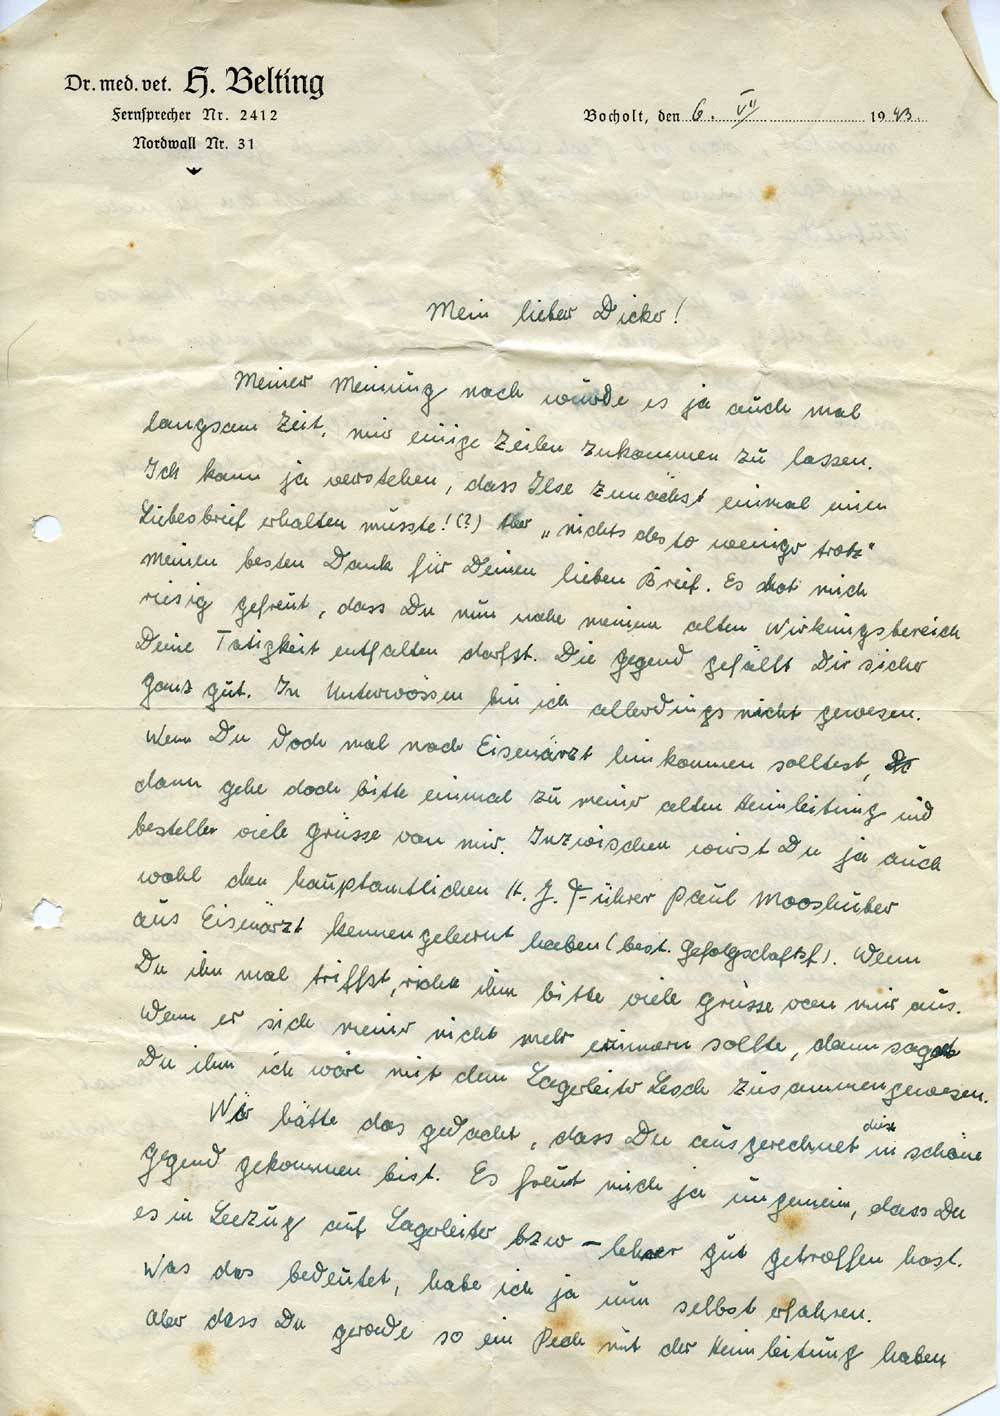 Dr. med. vet. H. Belting
Fernsprecher Nr. 2412
Nordwall Nr. 31
Bocholt, den 6. VII 1943.
Mein lieber Dicker!
Meiner Meinung nach würde es ja auch mal
langsam Zeit, mir einige Zeilen zukommen zu lassen.
Ich kann ja verstehen, dass Ilse zunächst einmal einen
Liebesbrief erhalten müsste! (?) Aber „nichts des to weniger trotz"
meinen besten Dank für Deinen lieben Brief. Es hat mich
riesig gefreut, dass Du nun nahe meinem alten Wirkungsbereich
Deine Tätigkeit entfalten darfst. Die Gegend gefällt Dir sicher
ganz gut. In Unterwössen bin ich allerdings nicht gewesen.
Wenn Du doch mal nach Eisenärzt hinkommen solltest,
dann gehe doch bitte einmal zu meiner alten Heimleitung und
bestelle viele Grüsse von mir. Inzwischen wirst Du ja auch
wohl den hauptamtlichen H. J. Führer Paul Mooshuber
aus Eisenärzt kennengelernt haben (best. Gefolgschaftsf). Wenn
Du ihn mal triffst, richte ihm bitte viele Grüsse von mir aus.
Wenn er sich meiner nicht mehr erinnern sollte, dann sage
Du ihm ich wäre mit dem Lagerleiter Lesch zusammengewesen.
Wer hätte das gedacht, dass Du ausgerechnet in diese schöne
Gegend gekommen bist. Es freut mich ja ungemein, dass Du
es in Bezug auf Lagerleiter bzw – lehrer gut getroffen hast.
Was das bedeutet, habe ich ja nun selbst erfahren.
Aber dass Du gerade so ein Pech mit der Heimleitung haben